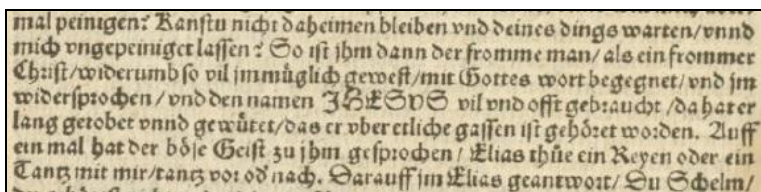 mal peinigen? Kanstu nicht daheimen bleiben vnd deines dings warten/vnnd
mich vngepeiniget lassen? So ist jhm dann der fromme man/ als ein frommer
Christ/widerumb so vil jm müglich gewest/mit Gottes wort begegnet/ vnd jm
widersprochen/ vnd den namen JHESVS vil vnd offt gebraucht /da hat er
lang getobet vnnd gewütet/das er vber etliche gassen ist gehöret worden. Auff
ein mal hat der böse Geist zu jhm gesprochen/ Elias thüe ein Reyen oder ein
Tantz mit mir/tantz vor od nach. Darauff jm Elias geantwort/ Du Schelm/